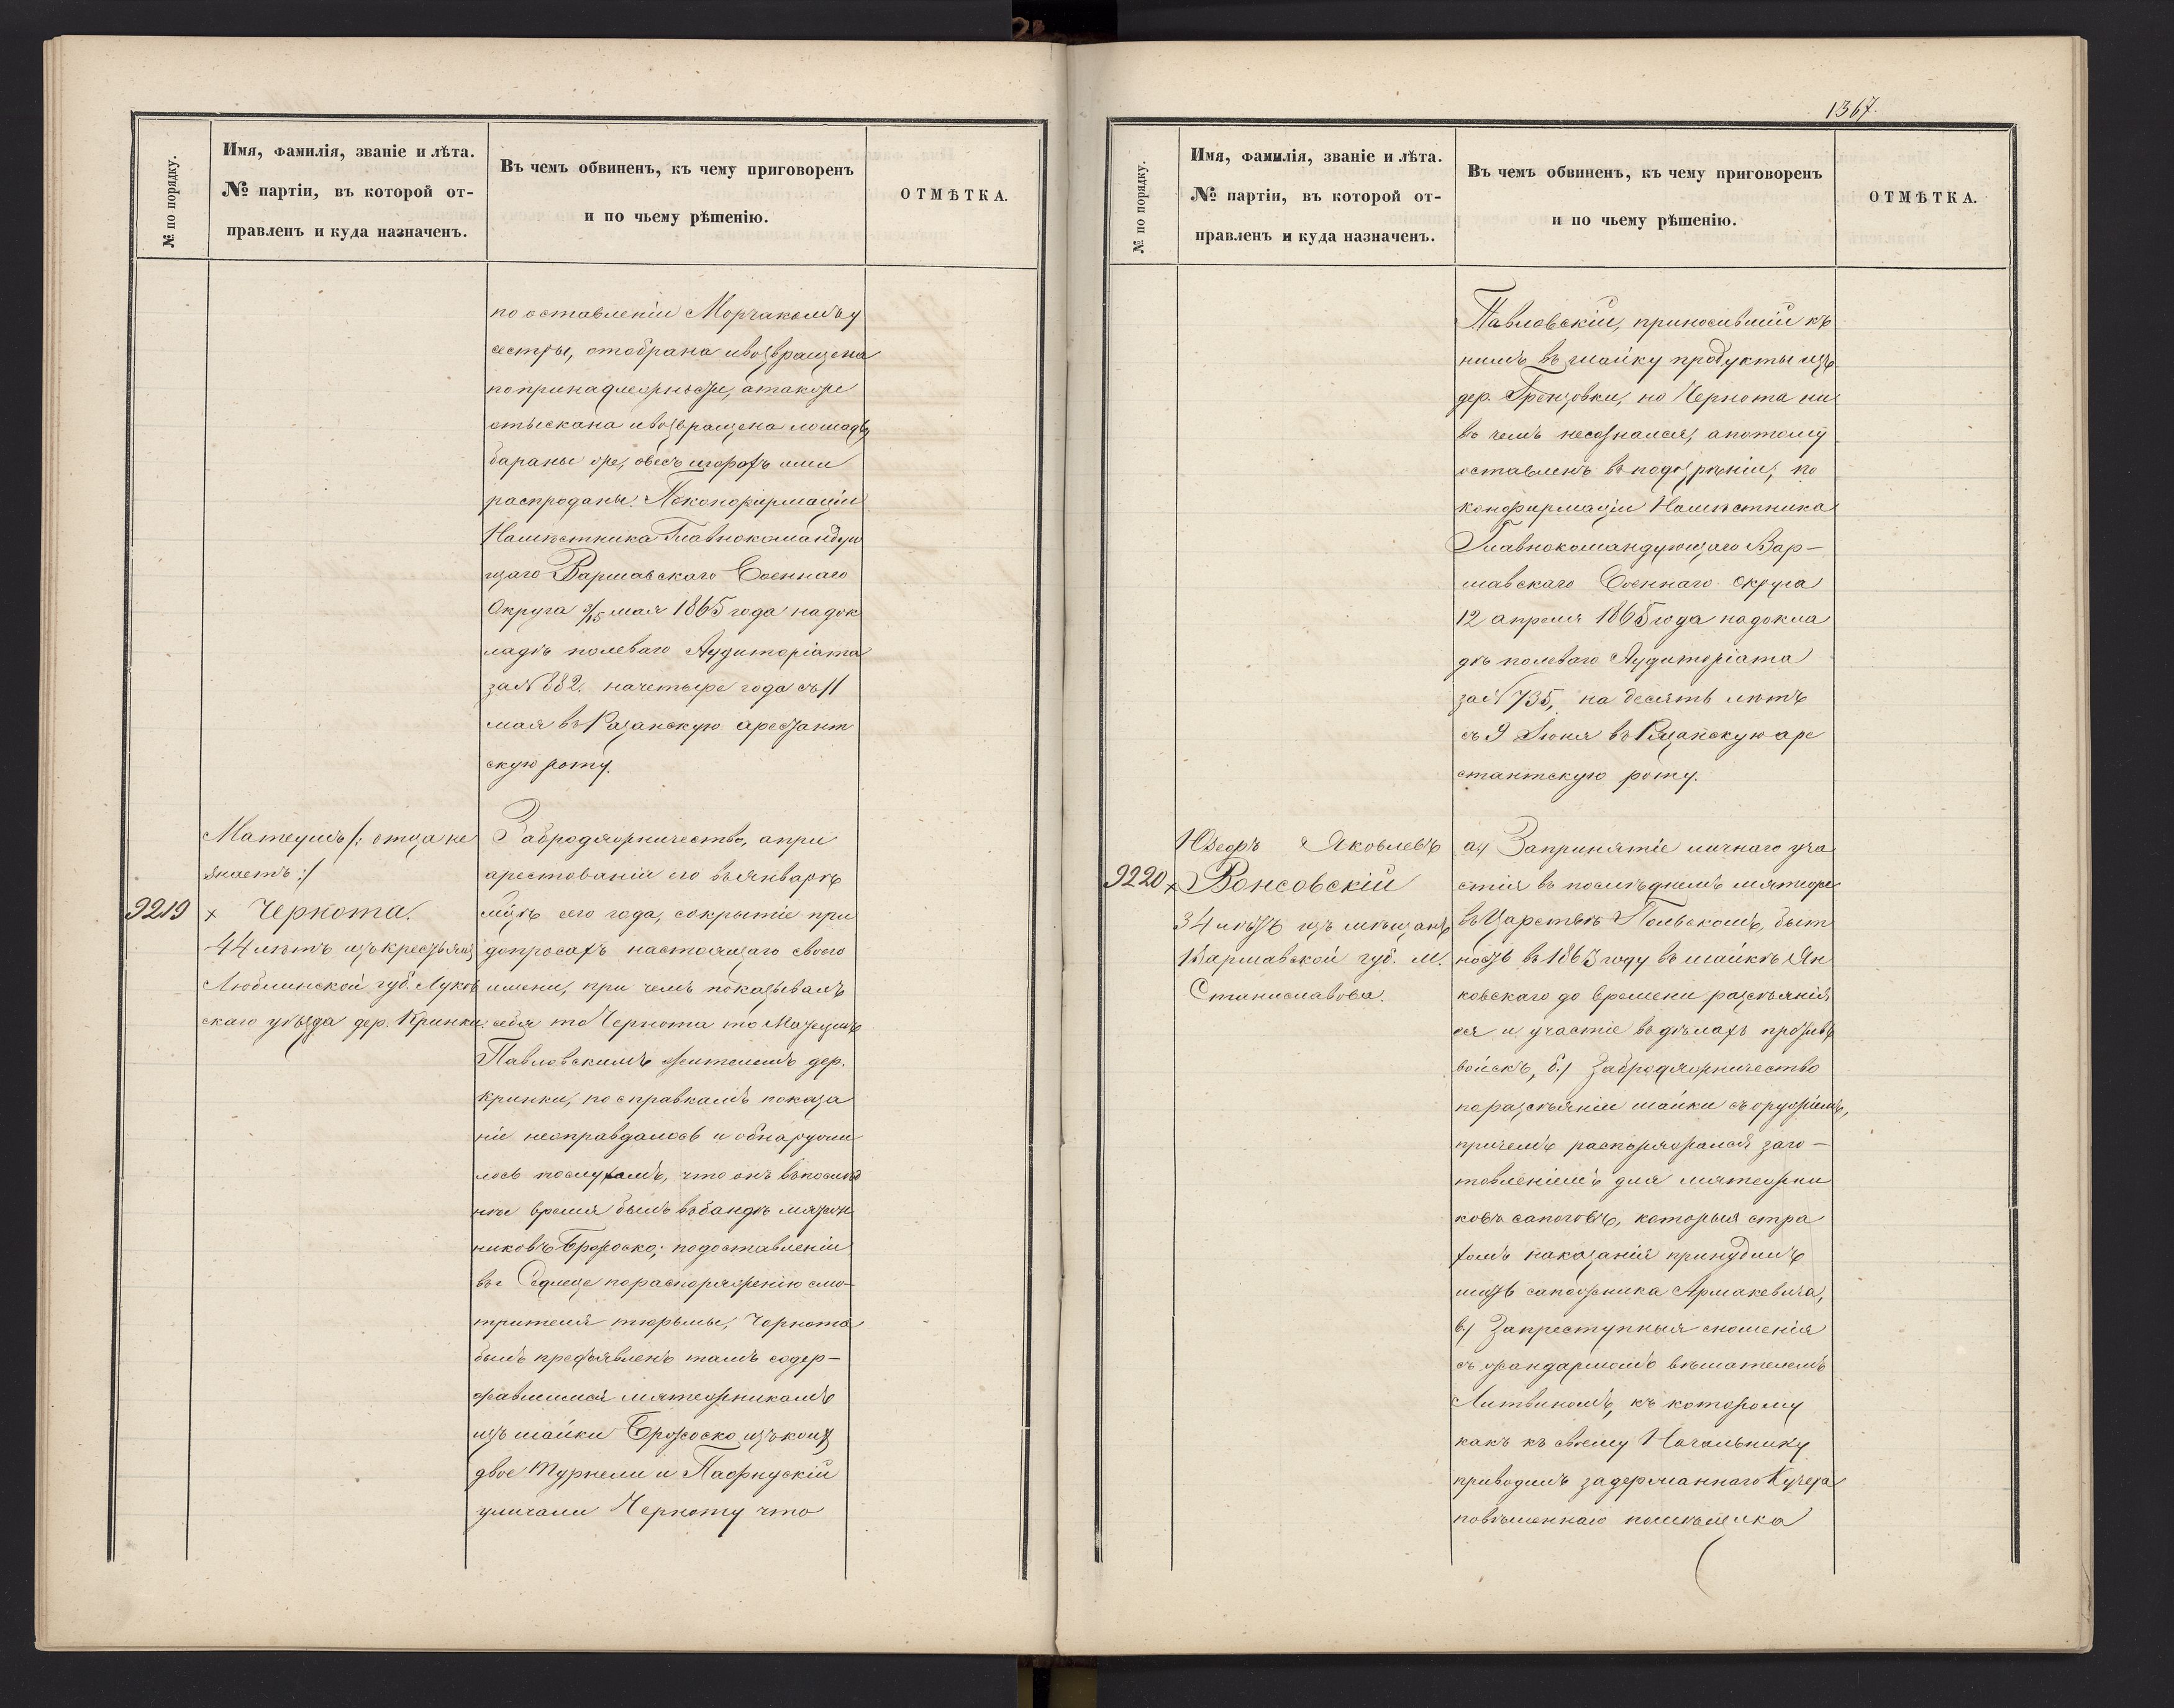 № по порядку.
Имя, фамилія, званіе и лѣта.
№ партіи, въ которой от-
правленъ и куда назначенъ.
Въ чемъ обвиненъ, къ чему приговоренъ
и по чьему рѣшенію.
ОТМѢТКА.
по оставленіи Морчакомъ у
сестры, отобрана и возвращена
по принадлежности, а также
отыскана и возвращена лошадь
бараны же, овесъ и горохъ ими
распроданы. По конфирмаціи
Намѣстника Главнокомандую
щаго Варшавскаго Военнаго
Округа 3/15 мая 1865 года на док
ладѣ полеваго Аудиторіата
за № 882. на четыре года съ 11
мая въ Казанскую арестант
скую роту.
Матеушъ /: отца не
знаетъ :/
9219 х Чернота.
44 лѣтъ изъ крестьянъ
Люблинской губ. Луков
скаго уѣзда дер. Кринки
За бродяжничество, а при
арестованіи его въ Январѣ
мцѣ сего года, сокрытіе при
допросахъ настоящаго своего
имени, при чемъ показывалъ
себя то Чернота то Матеушъ
Павловскимъ жителемъ дер.
Кринки, по справкамъ показа
ніе неоправдалось и обнаружи
лось по слухамъ, что онъ въ послѣд
нее время былъ въ бандѣ мятеж
никовъ Бржоско; по доставленіи
въ Седлеце по распоряженію смо-
трителя тюрьмы, Чернота
былъ предъявленъ тамъ содер-
жавшимся мятежникамъ
изъ шайки Бржоско, изъ коихъ
двое Турнели и Пафнускій
уличали Черноту что
1367.
№ по порядку.
Имя, фамилія, званіе и лѣта.
№ партіи, въ которой от-
правленъ и куда назначенъ.
Въ чемъ обвиненъ, къ чему приговоренъ
и по чьему рѣшенію.
ОТМѢТКА.
Павловскій, приносившій къ
нимъ въ шайку продукты изъ
дер. Гронзовки, но Чернота ни
въ чемъ несознался, а потому
оставленъ въ подозрѣніи; по
конфирмаціи Намѣстника
Главнокомандующаго Вар-
шавскаго Военнаго Округа
12 апреля 1865 года на докла
дѣ полеваго Аудиторіата
за № 735, на десять лѣтъ
съ 9 Іюня въ Казанскую аре
стантскую роту.
Юзефъ Яковлевъ
9220 х Вонсовскій
34 лѣтъ изъ мѣщанъ
Варшавской губ. М.
Станиславова.
а) За принятіе личнаго уча
стія въ послѣднемъ мятеже
въ Царствѣ Польскомъ, быт
ность въ 1863 году въ шайкѣ Ян
ковскаго до времени разсѣянія
ея и участіе въ дѣлахъ противъ
войскъ, б.) За бродяжничество
по разсѣяніи шайки съ оружіемъ,
причемъ распоряжался заго-
товленіемъ для мятежни
ковъ сапоговъ, которыя стра
хомъ наказанія принудилъ
шить сапожника Армакевича,
в.) За преступныя сношенія
съ жандармомъ вѣшателемъ
Литвиномъ, къ которому
какъ къ своему Начальнику
приводилъ задержаннаго Кучера
повѣшеннаго помѣщика